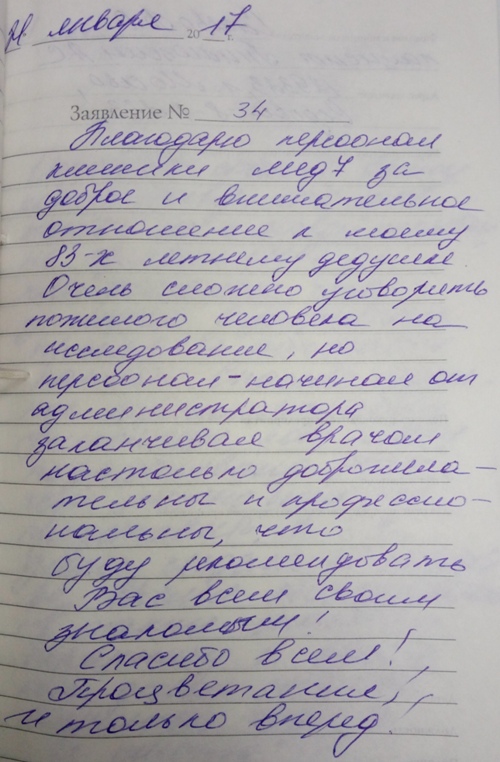 21 января 2017 г.
Заявление № 34
Благодарю персонал
клиники мед7 за
доброе и внимательное
отношение к моему
83-х летнему дедушке
Очень сложно уговорить
пожилого человека на
исследование, но
персонал-начиная от
администратора
заканчивая врачом
настолько доброжела-
тельны и профессио-
нальны, что
буду рекомендовать
Вас всем своим
знакомым!
Спасибо всем!
Процветания,
и только вперед!